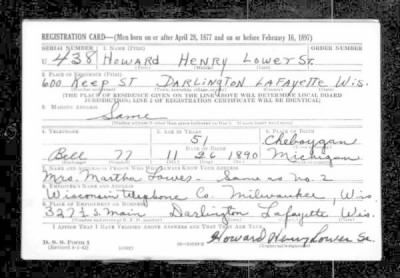 REGISTRATION CARD—(Men born on or after April 28, 1877 and on or before February 16, 1897)
SERIAL NUMBER 1. NAME (Print) ORDER NUMBER
U 438 Howard Henry Lower Sr.
2. PLACE OF RESIDENCE (Print)
600 Keep ST Darlington Lafayette Wis.
[THE PLACE OF RESIDENCE GIVEN ON THE LINE ABOVE WILL DETERMINE LOCAL BOARD
JURISDICTION; LINE 2 OF REGISTRATION CERTIFICATE WILL BE IDENTICAL]
3. MAILING ADDRESS
Same
4. TELEPHONE 5. AGE IN YEARS 6. PLACE OF BIRTH
51 Cheboygan
Bell 77 11 26 1890 Michigan
7. NAME AND ADDRESS OF PERSON WHO WILL ALWAYS KNOW YOUR ADDRESS
Mrs. Martha Lower - Same as No. 2
8. EMPLOYER'S NAME AND ADDRESS
Wisconsin Telephone Co. Milwaukee, Wis.
9. PLACE OF EMPLOYMENT OR BUSINESS
327½ S. Main Darlington Lafayette Wis.
I AFFIRM THAT I HAVE VERIFIED ABOVE ANSWERS AND THAT THEY ARE TRUE.
D. S. S. Form 1
Howard Henry Lower Sr.